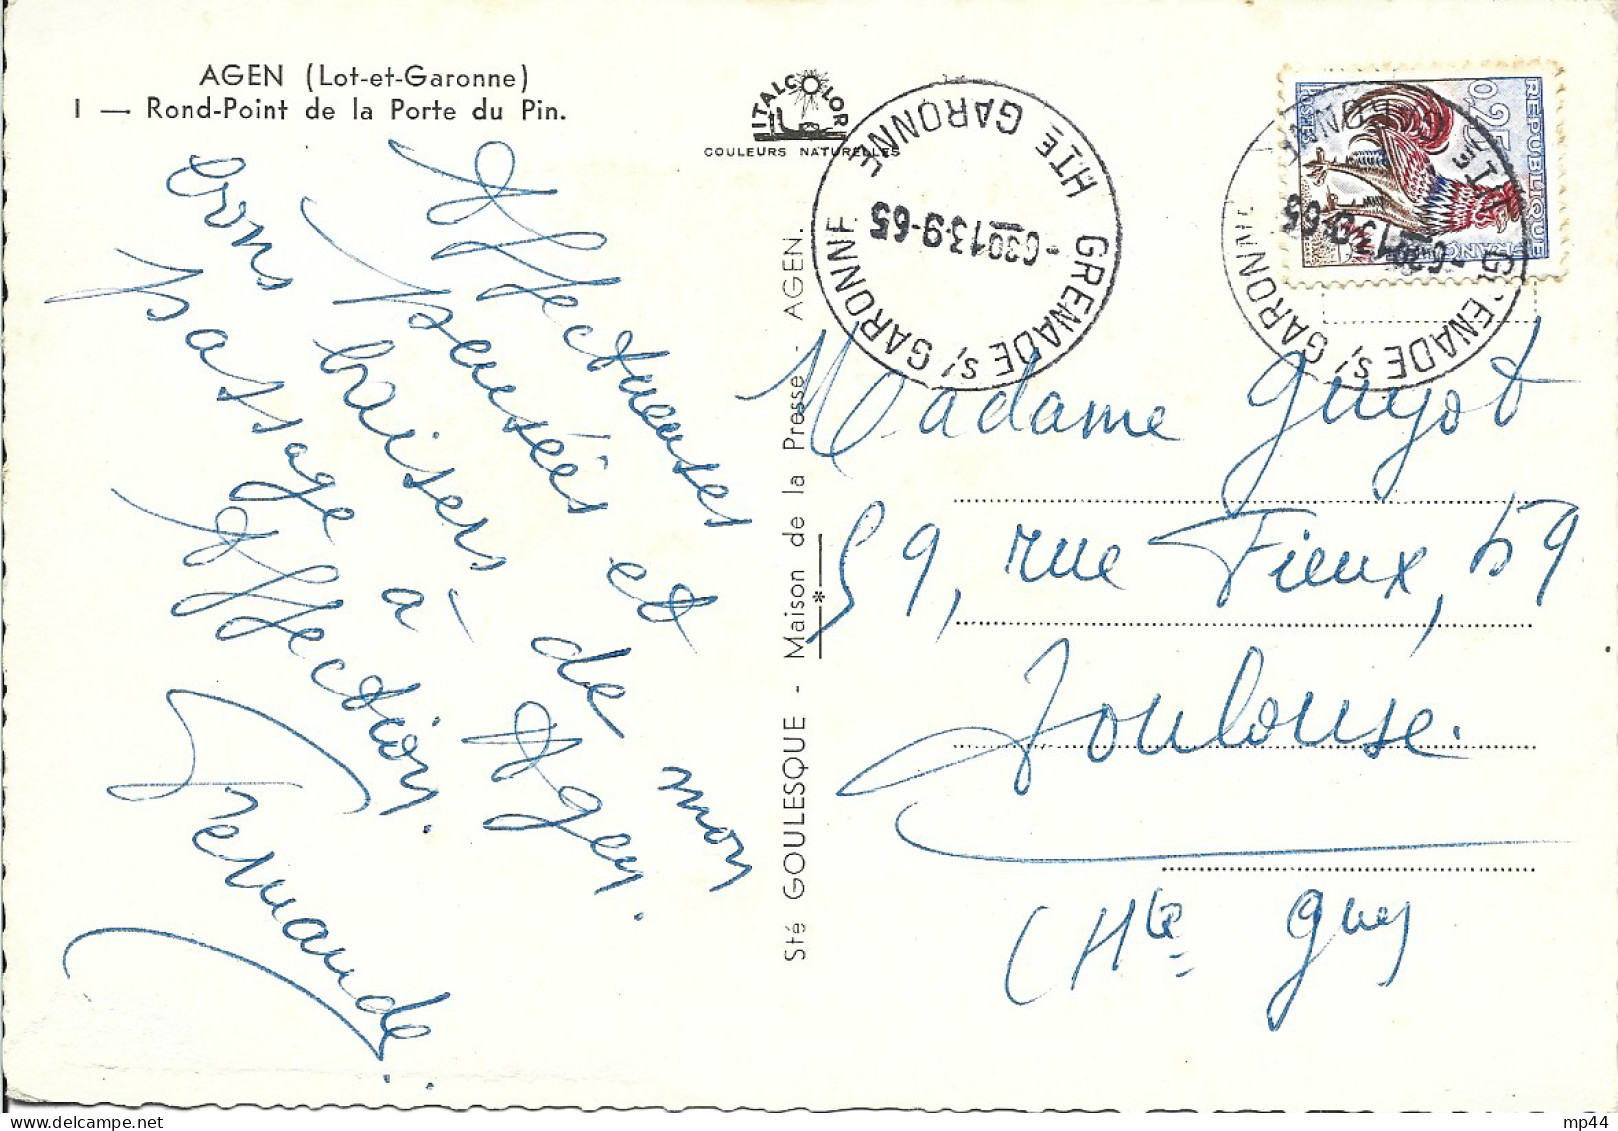 AGEN (Lot-et-Garonne)
1 — Rond-Point de la Porte du Pin.
ITALCOLOR
COULEURS NATURELLES
Affectueuses
pensées et
bons baisers de mon
passage à Agen.
Affection.
Fernande.
Sté GOULESQUE - Maison de la Presse - AGEN.
GRENADE S/ GARONNE
HTE GARONNE
-6301 3-9-65
REPUBLIQUE
FRANÇAISE
0,25
POSTES
GRENADE S/ GARONNE
HTE GARONNE
Madame Guyot
59, rue Fieux, 59
Toulouse.
(Hte Gne)
mp44